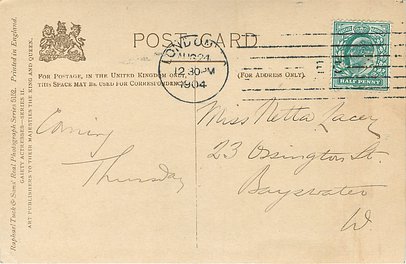 POST CARD
FOR POSTAGE, IN THE UNITED KINGDOM ONLY,
THIS SPACE MAY BE USED FOR CORRESPONDENCE
(FOR ADDRESS ONLY).
LONDON
AUG 24
12.30 PM
1904
HALF PENNY
Coming
Thursday
Miss Netta Lacey
23 Ossington St.
Bayswater
W.
Raphael Tuck & Sons' Real Photograph Series 5192. Printed in England.
GAIETY ACTRESSES—SERIES II.
ART PUBLISHERS TO THEIR MAJESTIES THE KING AND QUEEN.